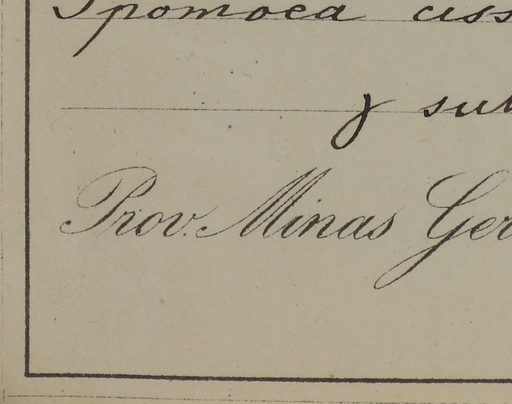 Ipomoea ciss
γ sub
Prov. Minas Ger